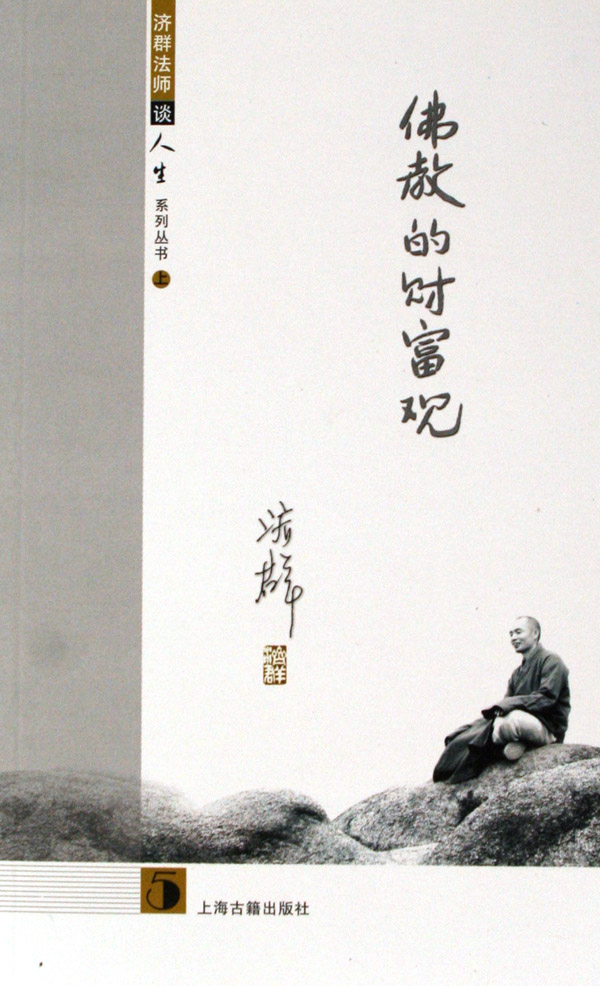 济群法师谈人生系列丛书上
佛教的财富观
济群
濟群
5
上海古籍出版社